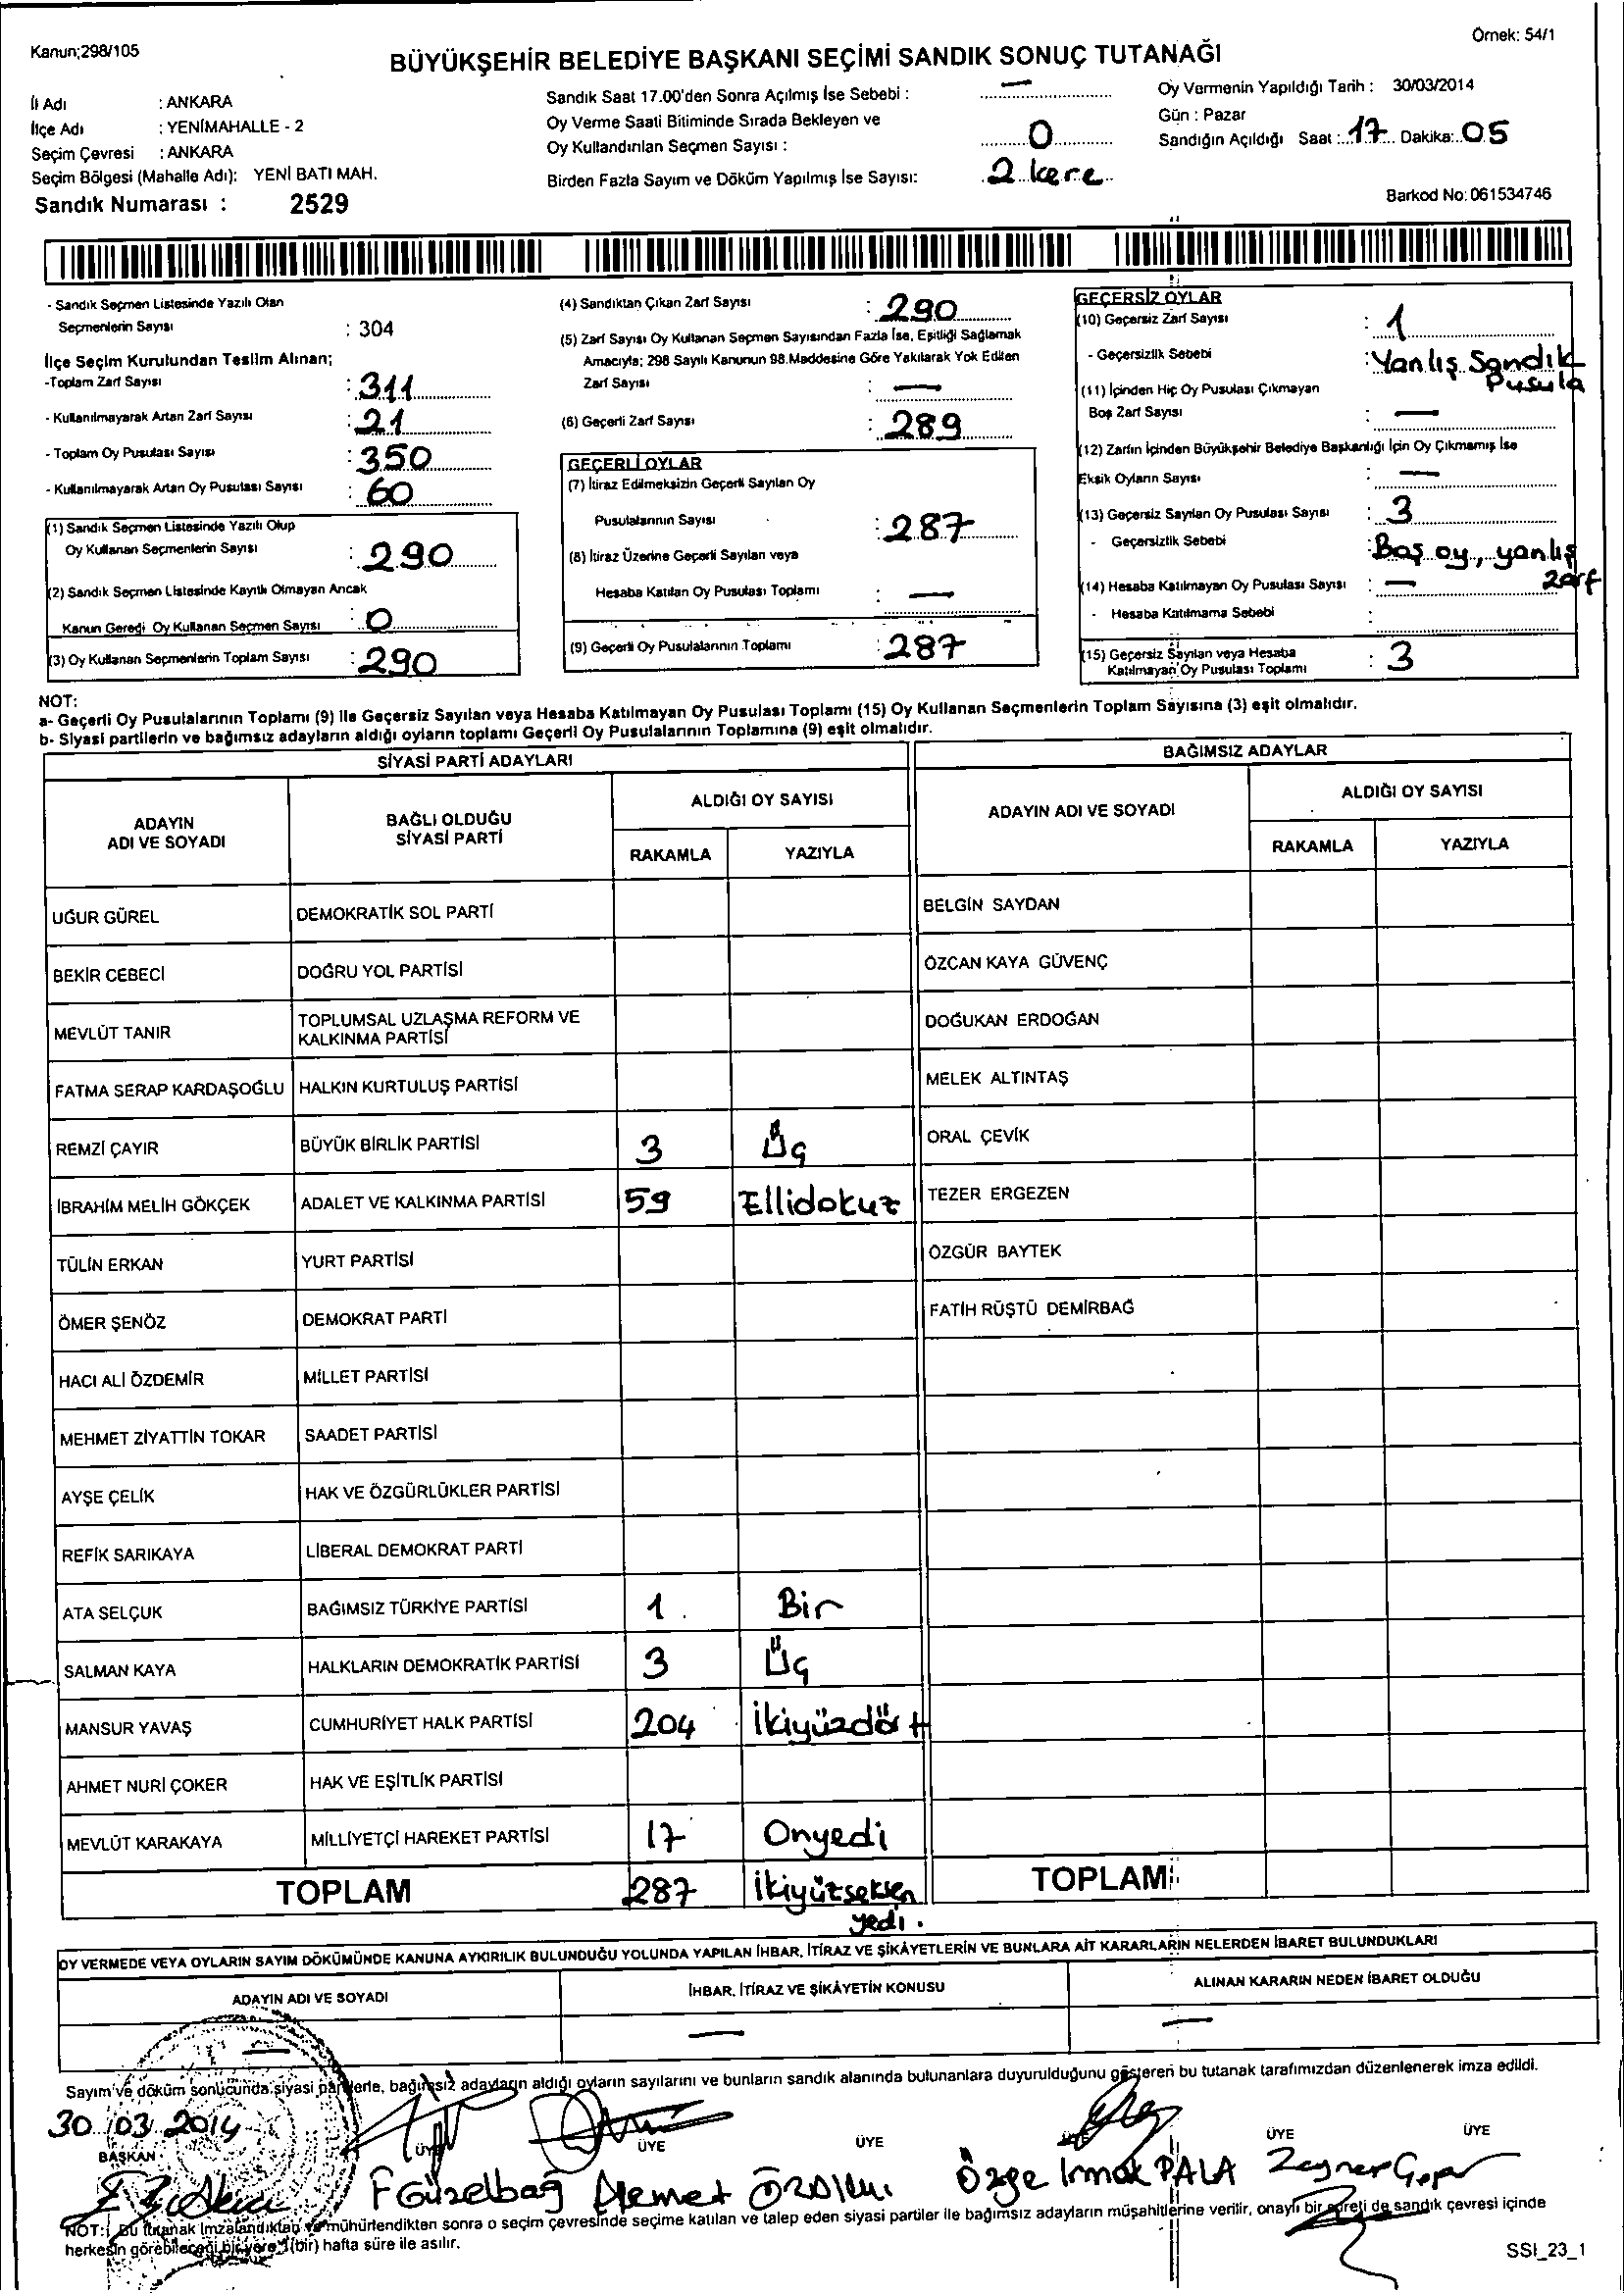 Kanun;298/105
Örnek: 54/1
BÜYÜKŞEHİR BELEDİYE BAŞKANI SEÇİMİ SANDIK SONUÇ TUTANAĞI
İl Adı : ANKARA
İlçe Adı : YENİMAHALLE - 2
Seçim Çevresi : ANKARA
Seçim Bölgesi (Mahalle Adı): YENİ BATI MAH.
Sandık Numarası : 2529
Sandık Saat 17.00'den Sonra Açılmış İse Sebebi : —
Oy Verme Saati Bitiminde Sırada Bekleyen ve
Oy Kullandırılan Seçmen Sayısı : 0
Birden Fazla Sayım ve Döküm Yapılmış İse Sayısı: 2 kere
Oy Vermenin Yapıldığı Tarih : 30/03/2014
Gün : Pazar
Sandığın Açıldığı Saat : 17 Dakika: 05
Barkod No: 061534746
- Sandık Seçmen Listesinde Yazılı Olan
Seçmenlerin Sayısı : 304
İlçe Seçim Kurulundan Teslim Alınan;
-Toplam Zarf Sayısı : 311
- Kullanılmayarak Artan Zarf Sayısı : 21
- Toplam Oy Pusulası Sayısı : 350
- Kullanılmayarak Artan Oy Pusulası Sayısı : 60
(1) Sandık Seçmen Listesinde Yazılı Olup
Oy Kullanan Seçmenlerin Sayısı : 290
(2) Sandık Seçmen Listesinde Kayıtlı Olmayan Ancak
Kanun Gereği Oy Kullanan Seçmen Sayısı : 0
(3) Oy Kullanan Seçmenlerin Toplam Sayısı : 290
(4) Sandıktan Çıkan Zarf Sayısı : 290
(5) Zarf Sayısı Oy Kullanan Seçmen Sayısından Fazla İse, Eşitliği Sağlamak
Amacıyla; 298 Sayılı Kanunun 98.Maddesine Göre Yakılarak Yok Edilen
Zarf Sayısı : —
(6) Geçerli Zarf Sayısı : 289
GEÇERLİ OYLAR
(7) İtiraz Edilmeksizin Geçerli Sayılan Oy
Pusulalarının Sayısı : 287
(8) İtiraz Üzerine Geçerli Sayılan veya
Hesaba Katılan Oy Pusulası Toplamı : —
(9) Geçerli Oy Pusulalarının Toplamı : 287
GEÇERSİZ OYLAR
(10) Geçersiz Zarf Sayısı : 1
- Geçersizlik Sebebi : Yanlış Sandık
Pusula
(11) İçinden Hiç Oy Pusulası Çıkmayan
Boş Zarf Sayısı : —
(12) Zarfın İçinden Büyükşehir Belediye Başkanlığı İçin Oy Çıkmamış İse
Eksik Oyların Sayısı : —
(13) Geçersiz Sayılan Oy Pusulası Sayısı : 3
- Geçersizlik Sebebi : Boş oy, yanlış
zarf
(14) Hesaba Katılmayan Oy Pusulası Sayısı : —
- Hesaba Katılmama Sebebi :
(15) Geçersiz Sayılan veya Hesaba
Katılmayan Oy Pusulası Toplamı : 3
NOT:
a- Geçerli Oy Pusulalarının Toplamı (9) İle Geçersiz Sayılan veya Hesaba Katılmayan Oy Pusulası Toplamı (15) Oy Kullanan Seçmenlerin Toplam Sayısına (3) eşit olmalıdır.
b- Siyasi partilerin ve bağımsız adayların aldığı oyların toplamı Geçerli Oy Pusulalarının Toplamına (9) eşit olmalıdır.
SİYASİ PARTİ ADAYLARI
BAĞIMSIZ ADAYLAR
ADAYIN
ADI VE SOYADI
BAĞLI OLDUĞU
SİYASİ PARTİ
ALDIĞI OY SAYISI
RAKAMLA YAZIYLA
ADAYIN ADI VE SOYADI
ALDIĞI OY SAYISI
RAKAMLA YAZIYLA
UĞUR GÜREL DEMOKRATİK SOL PARTİ BELGİN SAYDAN
BEKİR CEBECİ DOĞRU YOL PARTİSİ ÖZCAN KAYA GÜVENÇ
MEVLÜT TANIR TOPLUMSAL UZLAŞMA REFORM VE
KALKINMA PARTİSİ DOĞUKAN ERDOĞAN
FATMA SERAP KARDAŞOĞLU HALKIN KURTULUŞ PARTİSİ MELEK ALTINTAŞ
REMZİ ÇAYIR BÜYÜK BİRLİK PARTİSİ 3 Üç ORAL ÇEVİK
İBRAHİM MELİH GÖKÇEK ADALET VE KALKINMA PARTİSİ 59 Ellidokuz TEZER ERGEZEN
TÜLİN ERKAN YURT PARTİSİ ÖZGÜR BAYTEK
ÖMER ŞENÖZ DEMOKRAT PARTİ FATİH RÜŞTÜ DEMİRBAĞ
HACI ALİ ÖZDEMİR MİLLET PARTİSİ
MEHMET ZİYATTİN TOKAR SAADET PARTİSİ
AYŞE ÇELİK HAK VE ÖZGÜRLÜKLER PARTİSİ
REFİK SARIKAYA LİBERAL DEMOKRAT PARTİ
ATA SELÇUK BAĞIMSIZ TÜRKİYE PARTİSİ 1 Bir
SALMAN KAYA HALKLARIN DEMOKRATİK PARTİSİ 3 Üç
MANSUR YAVAŞ CUMHURİYET HALK PARTİSİ 204 İkiyüzdört
AHMET NURİ ÇOKER HAK VE EŞİTLİK PARTİSİ
MEVLÜT KARAKAYA MİLLİYETÇİ HAREKET PARTİSİ 17 Onyedi
TOPLAM 287 İkiyüzseksen
yedi.
TOPLAM
OY VERMEDE VEYA OYLARIN SAYIM DÖKÜMÜNDE KANUNA AYKIRILIK BULUNDUĞU YOLUNDA YAPILAN İHBAR, İTİRAZ VE ŞİKÂYETLERİN VE BUNLARA AİT KARARLARIN NELERDEN İBARET BULUNDUKLARI
ADAYIN ADI VE SOYADI İHBAR, İTİRAZ VE ŞİKÂYETİN KONUSU ALINAN KARARIN NEDEN İBARET OLDUĞU
— — —
Sayım ve döküm sonucunda siyasi partilerle, bağımsız adayların aldığı oyların sayılarını ve bunların sandık alanında bulunanlara duyurulduğunu gösteren bu tutanak tarafımızdan düzenlenerek imza edildi.
30/03/2014
BAŞKAN ÜYE ÜYE ÜYE ÜYE ÜYE ÜYE
F Güzelbağ Özge Irmak PALA Zeynep
NOT: Bu tutanak İmzalandıktan ve mühürlendikten sonra o seçim çevresinde seçime katılan ve talep eden siyasi partiler ile bağımsız adayların müşahitlerine verilir, onaylı bir sureti de sandık çevresi içinde
herkesin görebileceği bir yere 1(bir) hafta süre ile asılır.
SSI_23_1